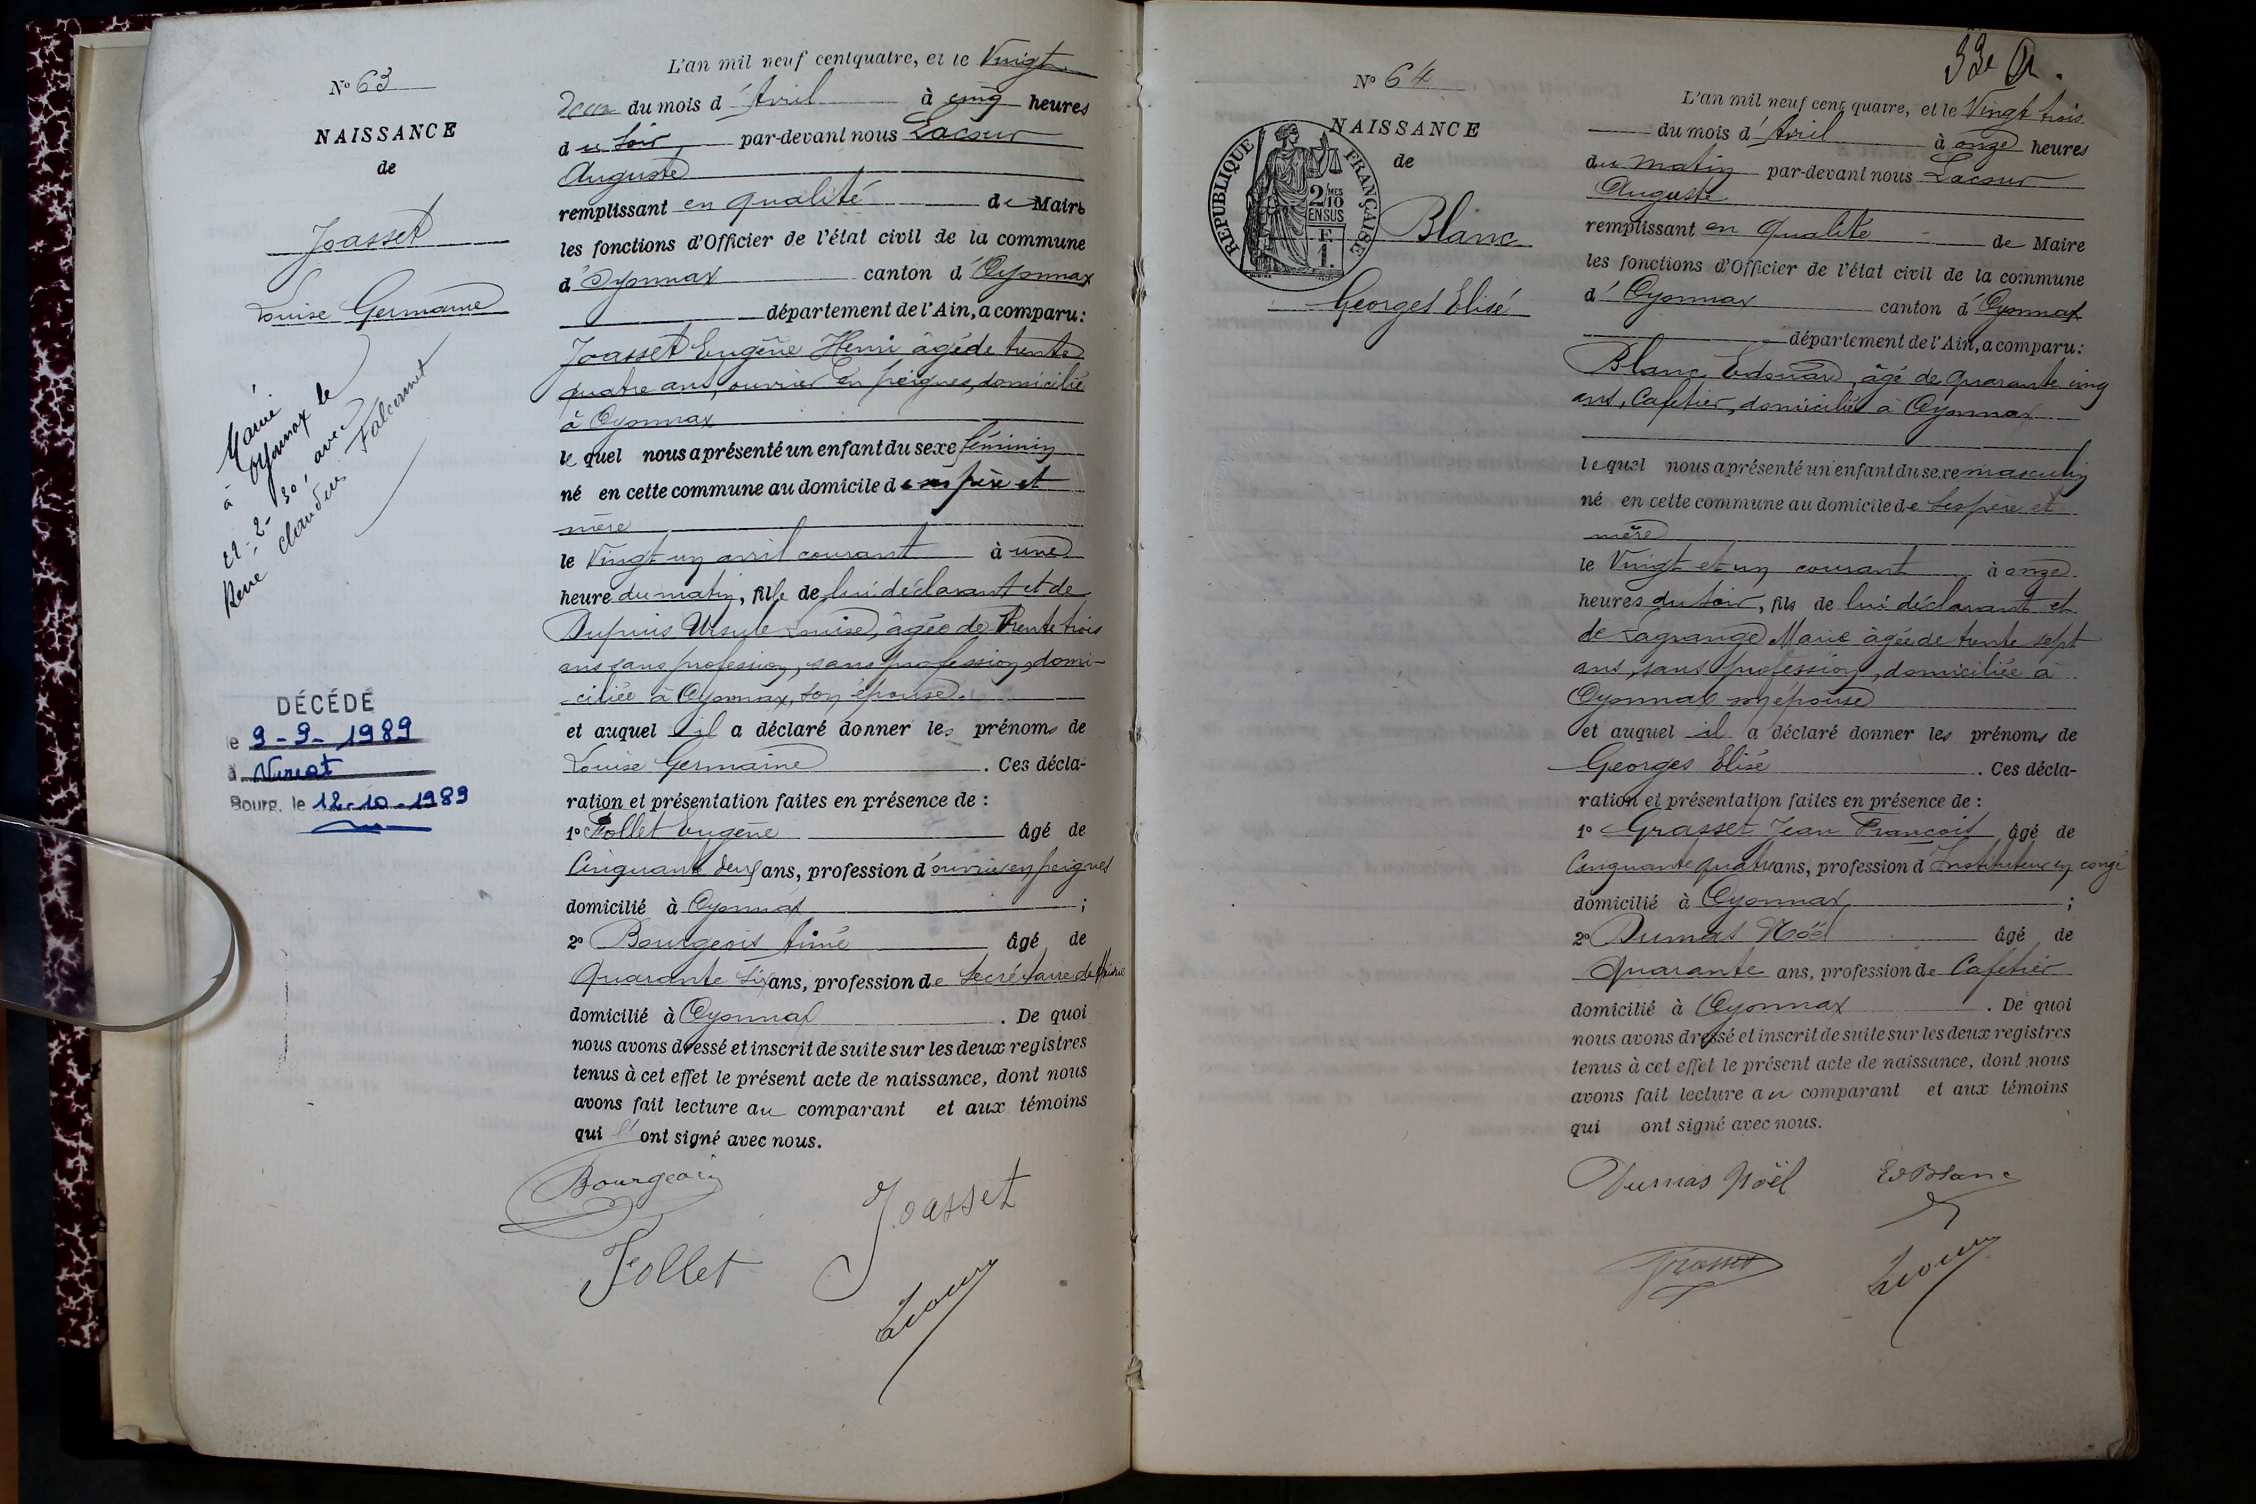 N° 63
NAISSANCE
de
Joasset
Louise Germaine
Marié
à Oyonnax le
22-2-30, avec
René Claudius Falconnet
DÉCÉDÉ
le 9-9-1989
à Viriat
Bourg, le 12-10-1989
L'an mil neuf cent quatre, et le Vingt
deux du mois d'Avril à cinq heures
du soir par-devant nous Lacour
Auguste
remplissant en qualité de Maire
les fonctions d'Officier de l'état civil de la commune
d'Oyonnax canton d'Oyonnax
département de l'Ain, a comparu:
Joasset Eugène Henri âgé de trente
quatre ans, ouvrier en peignes, domicilié
à Oyonnax
lequel nous a présenté un enfant du sexe féminin
né en cette commune au domicile de ses père et
mère
le Vingt un avril courant à une
heure du matin, fille de lui déclarant et de
Dupuis Ursule Louise, âgée de trente trois
ans sans profession, sans profession, domi-
ciliée à Oyonnax, son épouse.
et auquel il a déclaré donner les prénoms de
Louise Germaine . Ces décla-
ration et présentation faites en présence de :
1° Follet Eugène âgé de
Cinquante deux ans, profession d'ouvrier en peignes
domicilié à Oyonnax ;
2° Bourgeois Aimé âgé de
Quarante six ans, profession de Secrétaire de Mairie
domicilié à Oyonnax . De quoi
nous avons dressé et inscrit de suite sur les deux registres
tenus à cet effet le présent acte de naissance, dont nous
avons fait lecture au comparant et aux témoins
qui l'ont signé avec nous.
Bourgeois
Joasset
Follet
Lacour
33e
N° 64
NAISSANCE
de
RÉPUBLIQUE FRANÇAISE
2/10MES
EN SUS
F
1.
Blanc
Georges Elisé
L'an mil neuf cent quatre, et le Vingt trois
du mois d'Avril à onze heures
du matin par-devant nous Lacour
Auguste
remplissant en qualité de Maire
les fonctions d'Officier de l'état civil de la commune
d'Oyonnax canton d'Oyonnax
département de l'Ain, a comparu:
Blanc Edouard, âgé de quarante cinq
ans, Cafetier, domicilié à Oyonnax
lequel nous a présenté un enfant du sexe masculin
né en cette commune au domicile de ses père et
mère
le Vingt et un courant à onze
heures du soir, fils de lui déclarant et
de Lagrange Marie âgée de trente sept
ans, sans profession, domiciliée à
Oyonnax son épouse
et auquel il a déclaré donner les prénoms de
Georges Elisé . Ces décla-
ration et présentation faites en présence de :
1° Grasset Jean François âgé de
Cinquante quatre ans, profession d'Instituteur en congé
domicilié à Oyonnax ;
2° Dumas Noël âgé de
Quarante ans, profession de Cafetier
domicilié à Oyonnax . De quoi
nous avons dressé et inscrit de suite sur les deux registres
tenus à cet effet le présent acte de naissance, dont nous
avons fait lecture au comparant et aux témoins
qui ont signé avec nous.
Dumas Noël
Ed Blanc
Grasset
Lacour